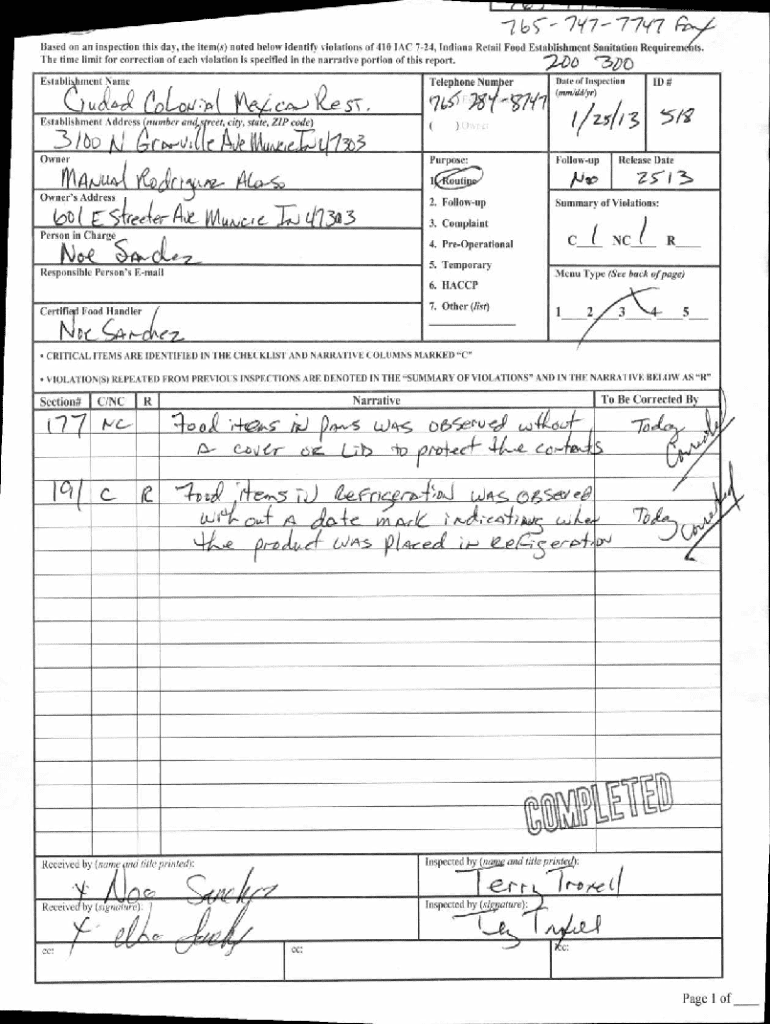 765-747-7747 Fax
Based on an inspection this day, the item(s) noted below identify violations of 410 IAC 7-24, Indiana Retail Food Establishment Sanitation Requirements.
The time limit for correction of each violation is specified in the narrative portion of this report.
200 300
Establishment Name
Ciudad Colonial Mexican Rest.
Telephone Number
765 284-8747
Date of Inspection
(mm/dd/yr)
1/25/13
ID #
518
Establishment Address (number and street, city, state, ZIP code)
3100 N Granville Ave Muncie In 47303
Owner
MANUAL Rodriguez
Purpose:
1. Routine
Follow-up
No
Release Date
2513
Owner's Address
601 E Streeter Ave Muncie In 47303
2. Follow-up
Summary of Violations:
3. Complaint
C 1 NC 1 R
Person in Charge
Noe Sanchez
4. Pre-Operational
Responsible Person's E-mail
5. Temporary
Menu Type (See back of page)
6. HACCP
Certified Food Handler
Noe Sanchez
7. Other (list)
1 2 3 4 5
• CRITICAL ITEMS ARE IDENTIFIED IN THE CHECKLIST AND NARRATIVE COLUMNS MARKED "C"
• VIOLATION(S) REPEATED FROM PREVIOUS INSPECTIONS ARE DENOTED IN THE "SUMMARY OF VIOLATIONS" AND IN THE NARRATIVE BELOW AS "R"
Section# C/NC R Narrative To Be Corrected By
177 NC Food items in pans was observed without Today
A cover or Lid to protect the contents Corrected
191 C R Food items in Refrigeration was observed
without a date mark indicating when Today
the product was placed in refigeration Corrected
COMPLETED
Received by (name and title printed):
x Noe Sanchez
Inspected by (name and title printed):
Terry Troxell
Received by (signature):
x
Inspected by (signature):
cc:
cc:
cc:
Page 1 of